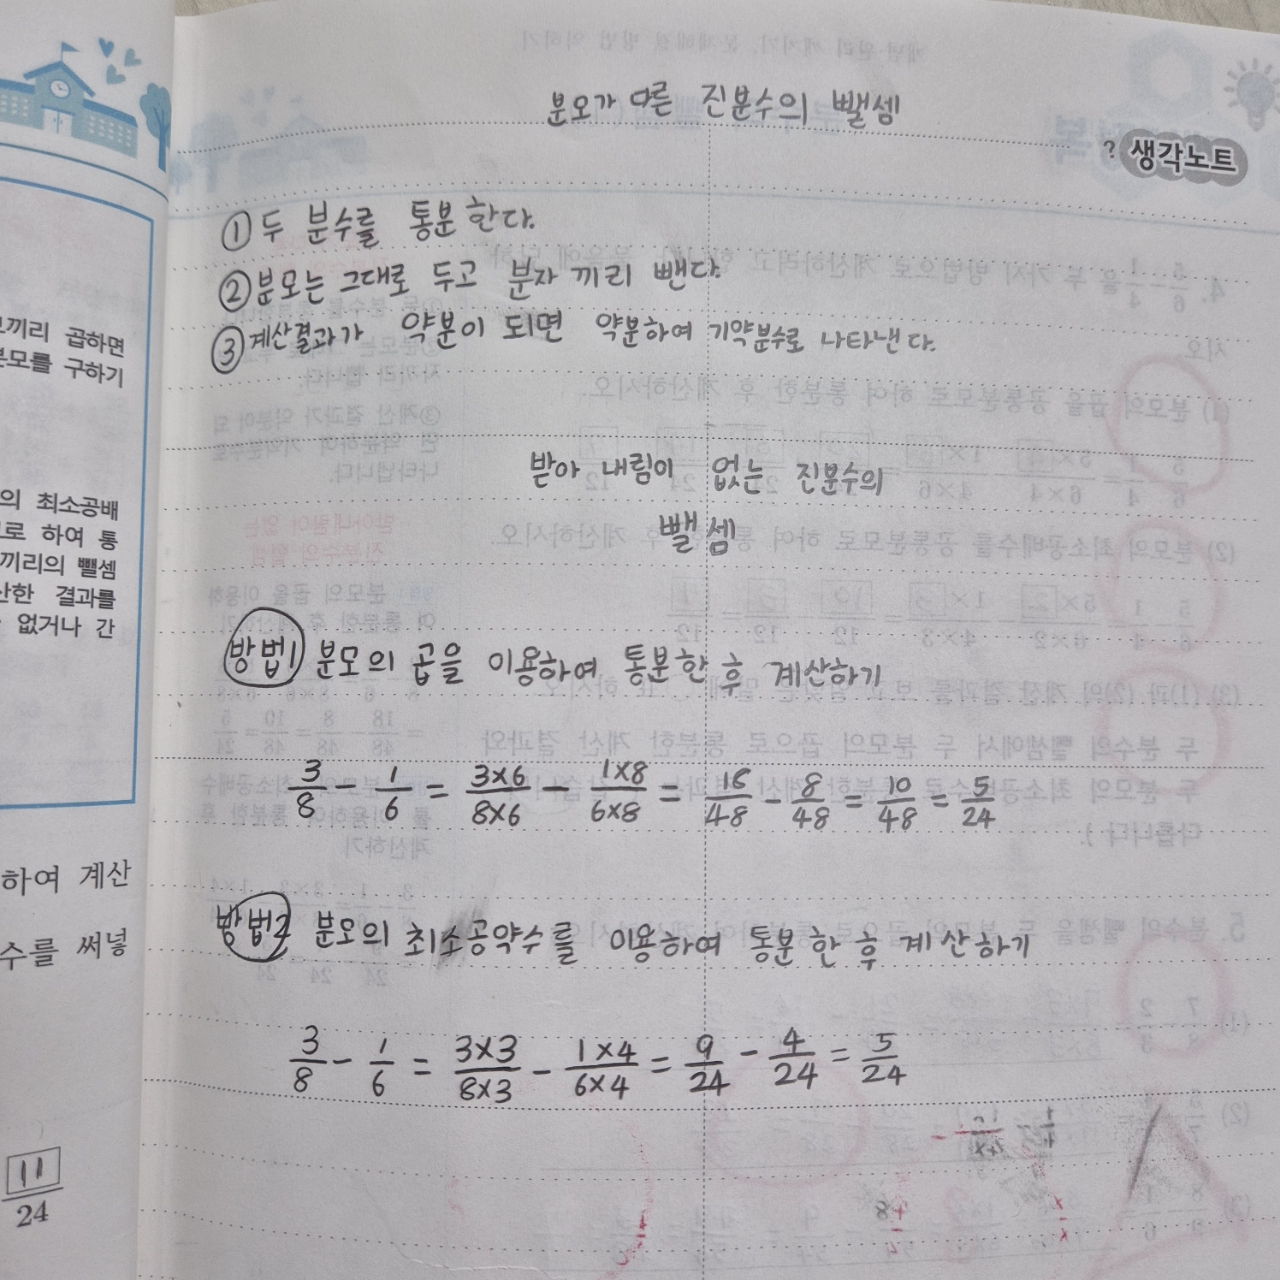 분모가 다른 진분수의 뺄셈
? 생각노트
① 두 분수를 통분한다.
② 분모는 그대로 두고 분자 끼리 뺀다.
③ 계산결과가 약분이 되면 약분하여 기약분수로 나타낸다.
받아 내림이 없는 진분수의
뺄셈
방법1 분모의 곱을 이용하여 통분한 후 계산하기
3/8 - 1/6 = 3×6/8×6 - 1×8/6×8 = 18/48 - 8/48 = 10/48 = 5/24
방법2 분모의 최소공약수를 이용하여 통분한 후 계산하기
3/8 - 1/6 = 3×3/8×3 - 1×4/6×4 = 9/24 - 4/24 = 5/24
끼리 곱하면
분모를 구하기
의 최소공배
로 하여 통
끼리의 뺄셈
산한 결과를
없거나 간
하여 계산
수를 써넣
11/24